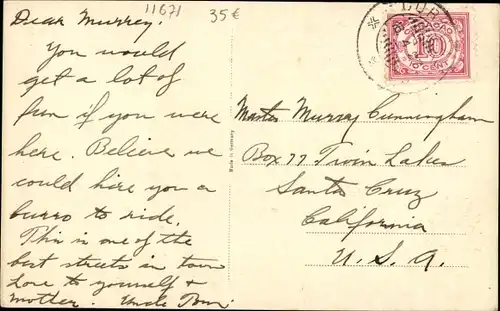 11671
35€
Dear Murrey:
You would
get a lot of
fun if you were
here. Believe we
could hire you a
burro to ride.
This is one of the
best streets in town
Love to yourself &
mother. Uncle Tom.
10
10 CENT
Master Murrey Cunningham
Box 77 Twin Lakes
Santa Cruz
California
U. S. A.